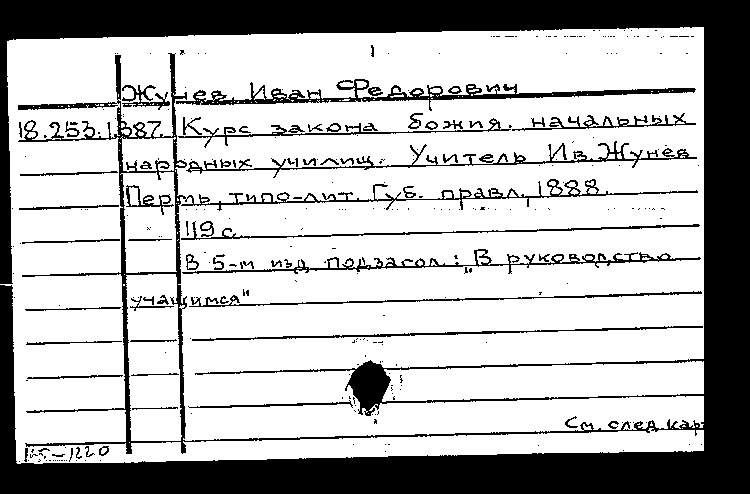 1
Жунев, Иван Федорович
18.253.1.387. Курс закона божия. начальных
народных училищ. Учитель Ив. Жунев
Пермь, типо-лит. Губ. правл., 1888.
119 с.
В 5-м изд подзагол.: „В руководство
учащимся"
См. след. кар